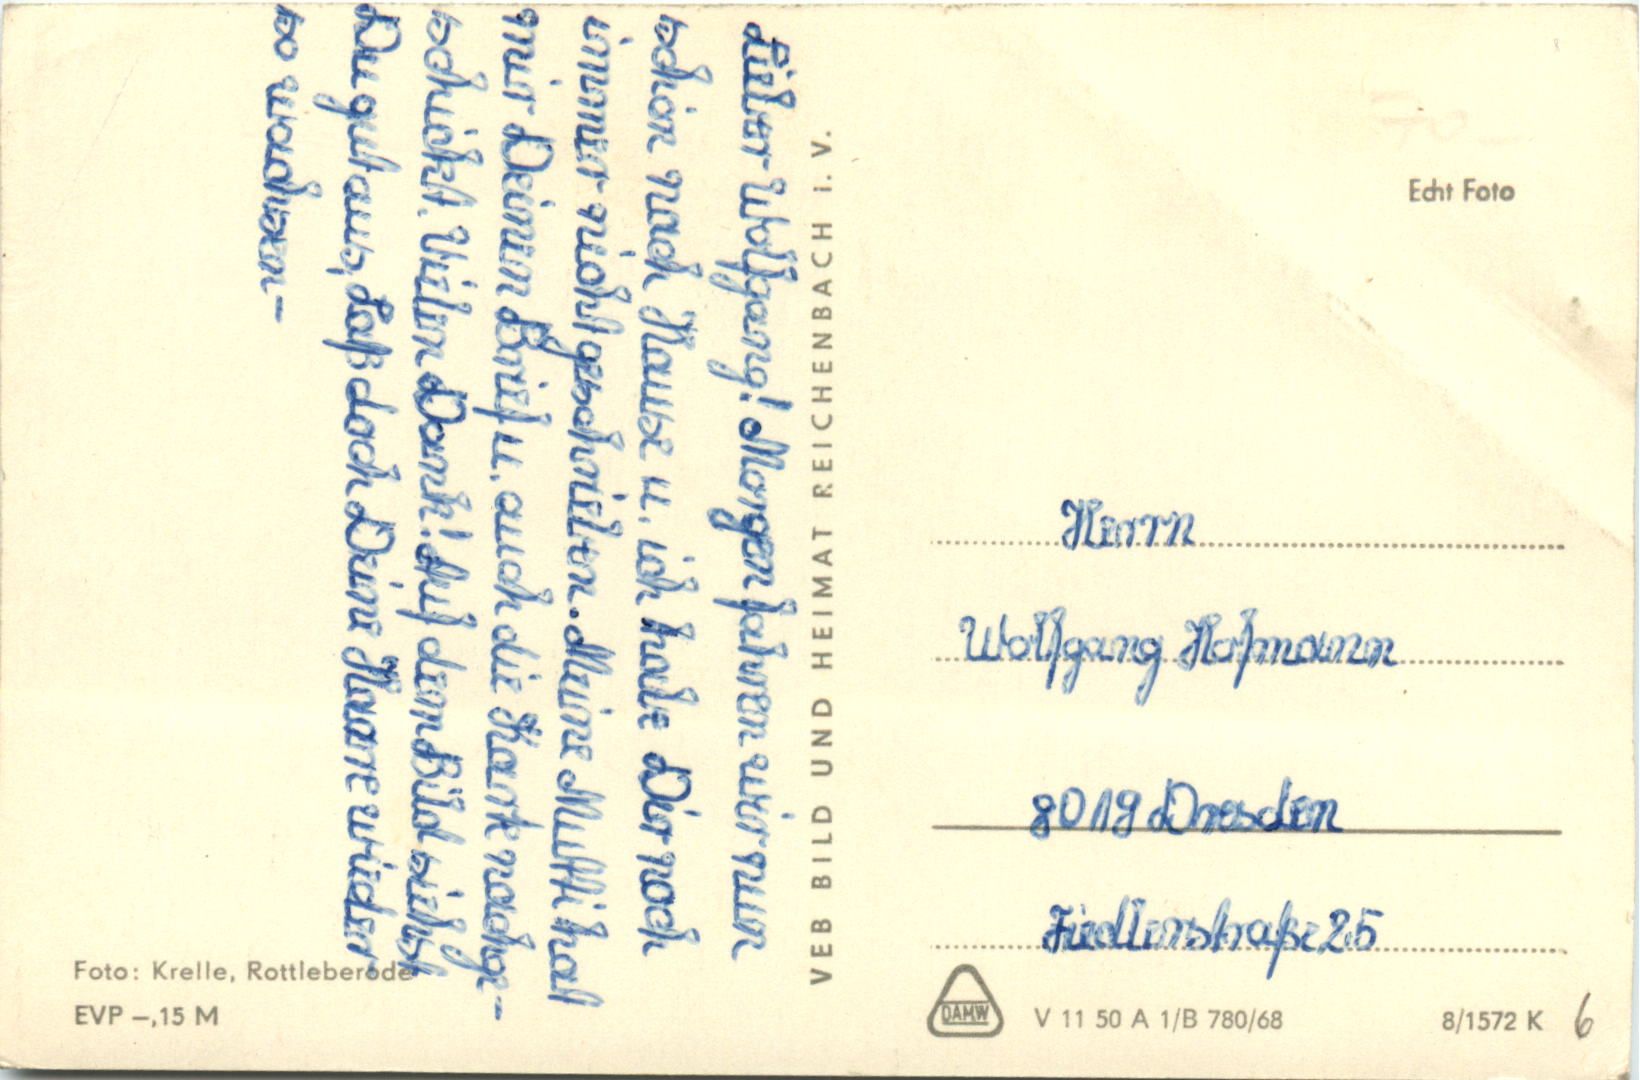 Lieber Wolfgang! Morgen fahren wir nun
schon nach Hause u. ich habe Dir noch
immer nicht geschrieben. Meine Mutti hat
mir Deinen Brief u. auch die Karte nachge-
schickt. Vielen Dank! Auf dem Bild siehst
Du gut aus, Laß doch Deine Haare wieder
so wachsen-
Foto: Krelle, Rottleberode
EVP –,15 M
VEB BILD UND HEIMAT REICHENBACH i. V.
Echt Foto
Herrn
Wolfgang Hofmann
8019 Dresden
Fiedlerstraße 25
DAMW
V 11 50 A 1/B 780/68
8/1572 K
6